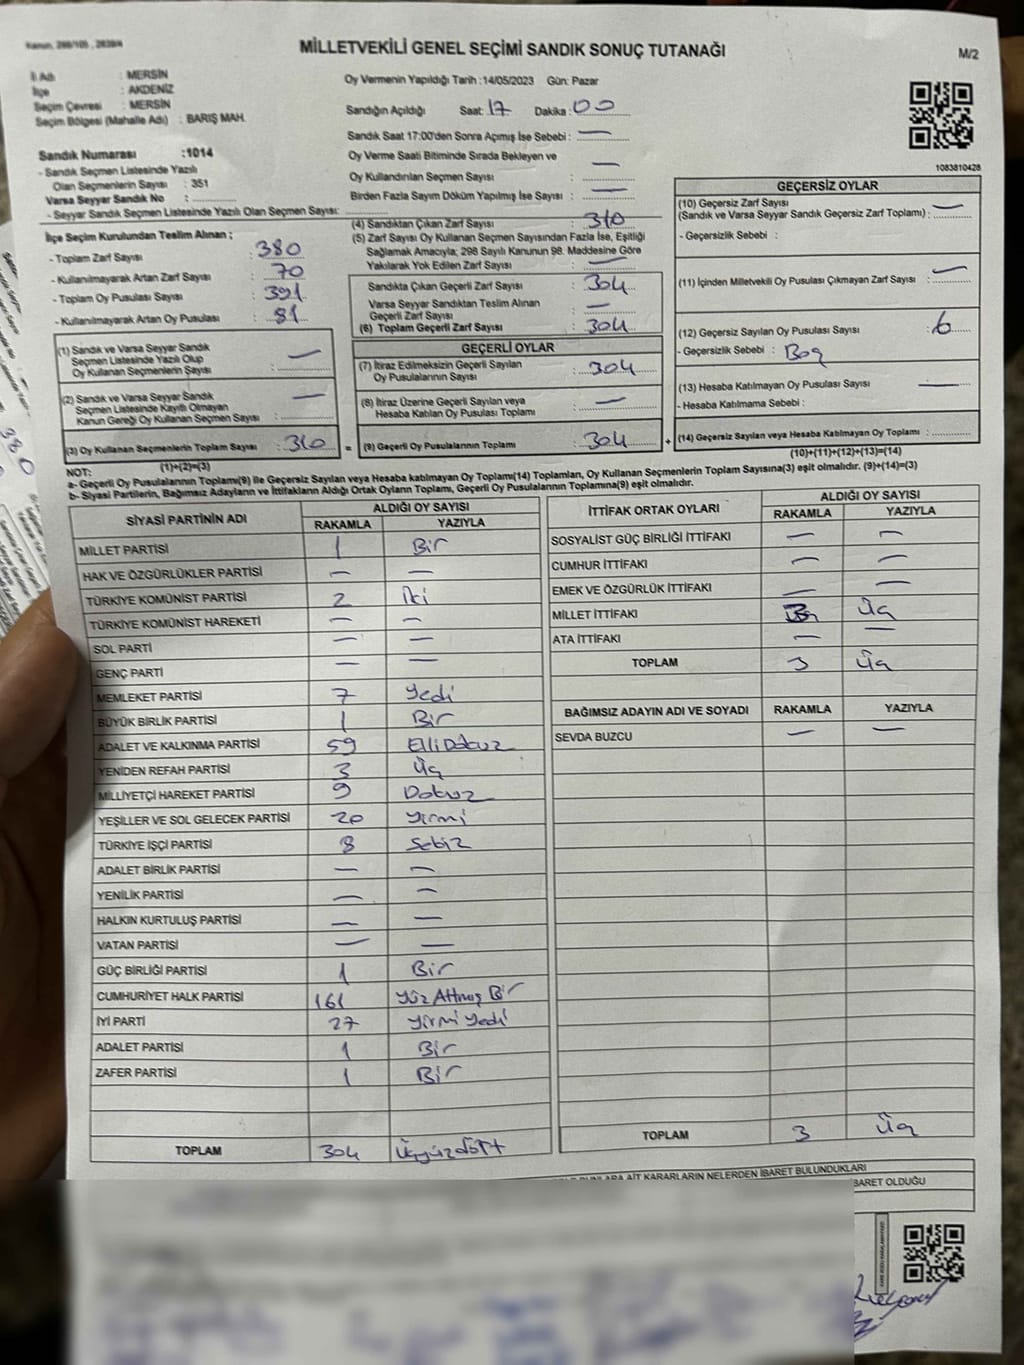 Kanun, 298/105 , 2839/4
MİLLETVEKİLİ GENEL SEÇİMİ SANDIK SONUÇ TUTANAĞI
M/2
İl Adı : MERSİN
İlçe : AKDENİZ
Seçim Çevresi : MERSİN
Seçim Bölgesi (Mahalle Adı) : BARIŞ MAH.
Sandık Numarası :1014
- Sandık Seçmen Listesinde Yazılı
Olan Seçmenlerin Sayısı : 351
Varsa Seyyar Sandık No :
- Seyyar Sandık Seçmen Listesinde Yazılı Olan Seçmen Sayısı:
Oy Vermenin Yapıldığı Tarih :14/05/2023 Gün: Pazar
Sandığın Açıldığı Saat: 17 Dakika: 00
Sandık Saat 17:00'den Sonra Açımış İse Sebebi : —
Oy Verme Saati Bitiminde Sırada Bekleyen ve
Oy Kullandırılan Seçmen Sayısı : —
Birden Fazla Sayım Döküm Yapılmış İse Sayısı : —
1083810428
İlçe Seçim Kurulundan Teslim Alınan ;
- Toplam Zarf Sayısı : 380
- Kullanılmayarak Artan Zarf Sayısı : 70
- Toplam Oy Pusulası Sayısı : 391
- Kullanılmayarak Artan Oy Pusulası : 81
(1) Sandık ve Varsa Seyyar Sandık
Seçmen Listesinde Yazılı Olup
Oy Kullanan Seçmenlerin Sayısı : —
(2) Sandık ve Varsa Seyyar Sandık
Seçmen Listesinde Kayıtlı Olmayan
Kanun Gereği Oy Kullanan Seçmen Sayısı : —
(3) Oy Kullanan Seçmenlerin Toplam Sayısı : 310 =
(1)+(2)=(3)
(4) Sandıktan Çıkan Zarf Sayısı : 310
(5) Zarf Sayısı Oy Kullanan Seçmen Sayısından Fazla İse, Eşitliği
Sağlamak Amacıyla; 298 Sayılı Kanunun 98. Maddesine Göre
Yakılarak Yok Edilen Zarf Sayısı : —
Sandıkta Çıkan Geçerli Zarf Sayısı : 304
Varsa Seyyar Sandıktan Teslim Alınan
Geçerli Zarf Sayısı : —
(6) Toplam Geçerli Zarf Sayısı : 304
GEÇERLİ OYLAR
(7) İtiraz Edilmeksizin Geçerli Sayılan
Oy Pusulalarının Sayısı : 304
(8) İtiraz Üzerine Geçerli Sayılan veya
Hesaba Katılan Oy Pusulası Toplamı : —
(9) Geçerli Oy Pusulalarının Toplamı : 304 +
GEÇERSİZ OYLAR
(10) Geçersiz Zarf Sayısı
(Sandık ve Varsa Seyyar Sandık Geçersiz Zarf Toplamı) : —
- Geçersizlik Sebebi :
(11) İçinden Milletvekili Oy Pusulası Çıkmayan Zarf Sayısı : —
(12) Geçersiz Sayılan Oy Pusulası Sayısı : 6
- Geçersizlik Sebebi : Boş
(13) Hesaba Katılmayan Oy Pusulası Sayısı : —
- Hesaba Katılmama Sebebi :
(14) Geçersiz Sayılan veya Hesaba Katılmayan Oy Toplamı :
(10)+(11)+(12)+(13)=(14)
NOT:
a- Geçerli Oy Pusulaları Toplamı(9) ile Geçersiz Sayılan veya Hesaba katılmayan Oy Toplamı(14) Toplamları, Oy Kullanan Seçmenlerin Toplam Sayısına(3) eşit olmalıdır. (9)+(14)=(3)
b- Siyasi Partilerin, Bağımsız Adayların ve İttifakların Aldığı Ortak Oyların Toplamı, Geçerli Oy Pusulalarının Toplamına(9) eşit olmalıdır.
SİYASİ PARTİNİN ADI ALDIĞI OY SAYISI
RAKAMLA YAZIYLA
MİLLET PARTİSİ 1 Bir
HAK VE ÖZGÜRLÜKLER PARTİSİ — —
TÜRKİYE KOMÜNİST PARTİSİ 2 İki
TÜRKİYE KOMÜNİST HAREKETİ — —
SOL PARTİ — —
GENÇ PARTİ — —
MEMLEKET PARTİSİ 7 Yedi
BÜYÜK BİRLİK PARTİSİ 1 Bir
ADALET VE KALKINMA PARTİSİ 59 Elli Dokuz
YENİDEN REFAH PARTİSİ 3 Üç
MİLLİYETÇİ HAREKET PARTİSİ 9 Dokuz
YEŞİLLER VE SOL GELECEK PARTİSİ 20 Yirmi
TÜRKİYE İŞÇİ PARTİSİ 8 Sekiz
ADALET BİRLİK PARTİSİ — —
YENİLİK PARTİSİ — —
HALKIN KURTULUŞ PARTİSİ — —
VATAN PARTİSİ — —
GÜÇ BİRLİĞİ PARTİSİ 1 Bir
CUMHURİYET HALK PARTİSİ 161 Yüz Altmış Bir
İYİ PARTİ 27 Yirmi Yedi
ADALET PARTİSİ 1 Bir
ZAFER PARTİSİ 1 Bir
TOPLAM 304 Üçyüzdört
İTTİFAK ORTAK OYLARI ALDIĞI OY SAYISI
RAKAMLA YAZIYLA
SOSYALİST GÜÇ BİRLİĞİ İTTİFAKI — —
CUMHUR İTTİFAKI — —
EMEK VE ÖZGÜRLÜK İTTİFAKI — —
MİLLET İTTİFAKI Üç
ATA İTTİFAKI — —
TOPLAM 3 Üç
BAĞIMSIZ ADAYIN ADI VE SOYADI RAKAMLA YAZIYLA
SEVDA BUZCU — —
TOPLAM 3 Üç
AİT KARARLARIN NELERDEN İBARET BULUNDUKLARI
İBARET OLDUĞU